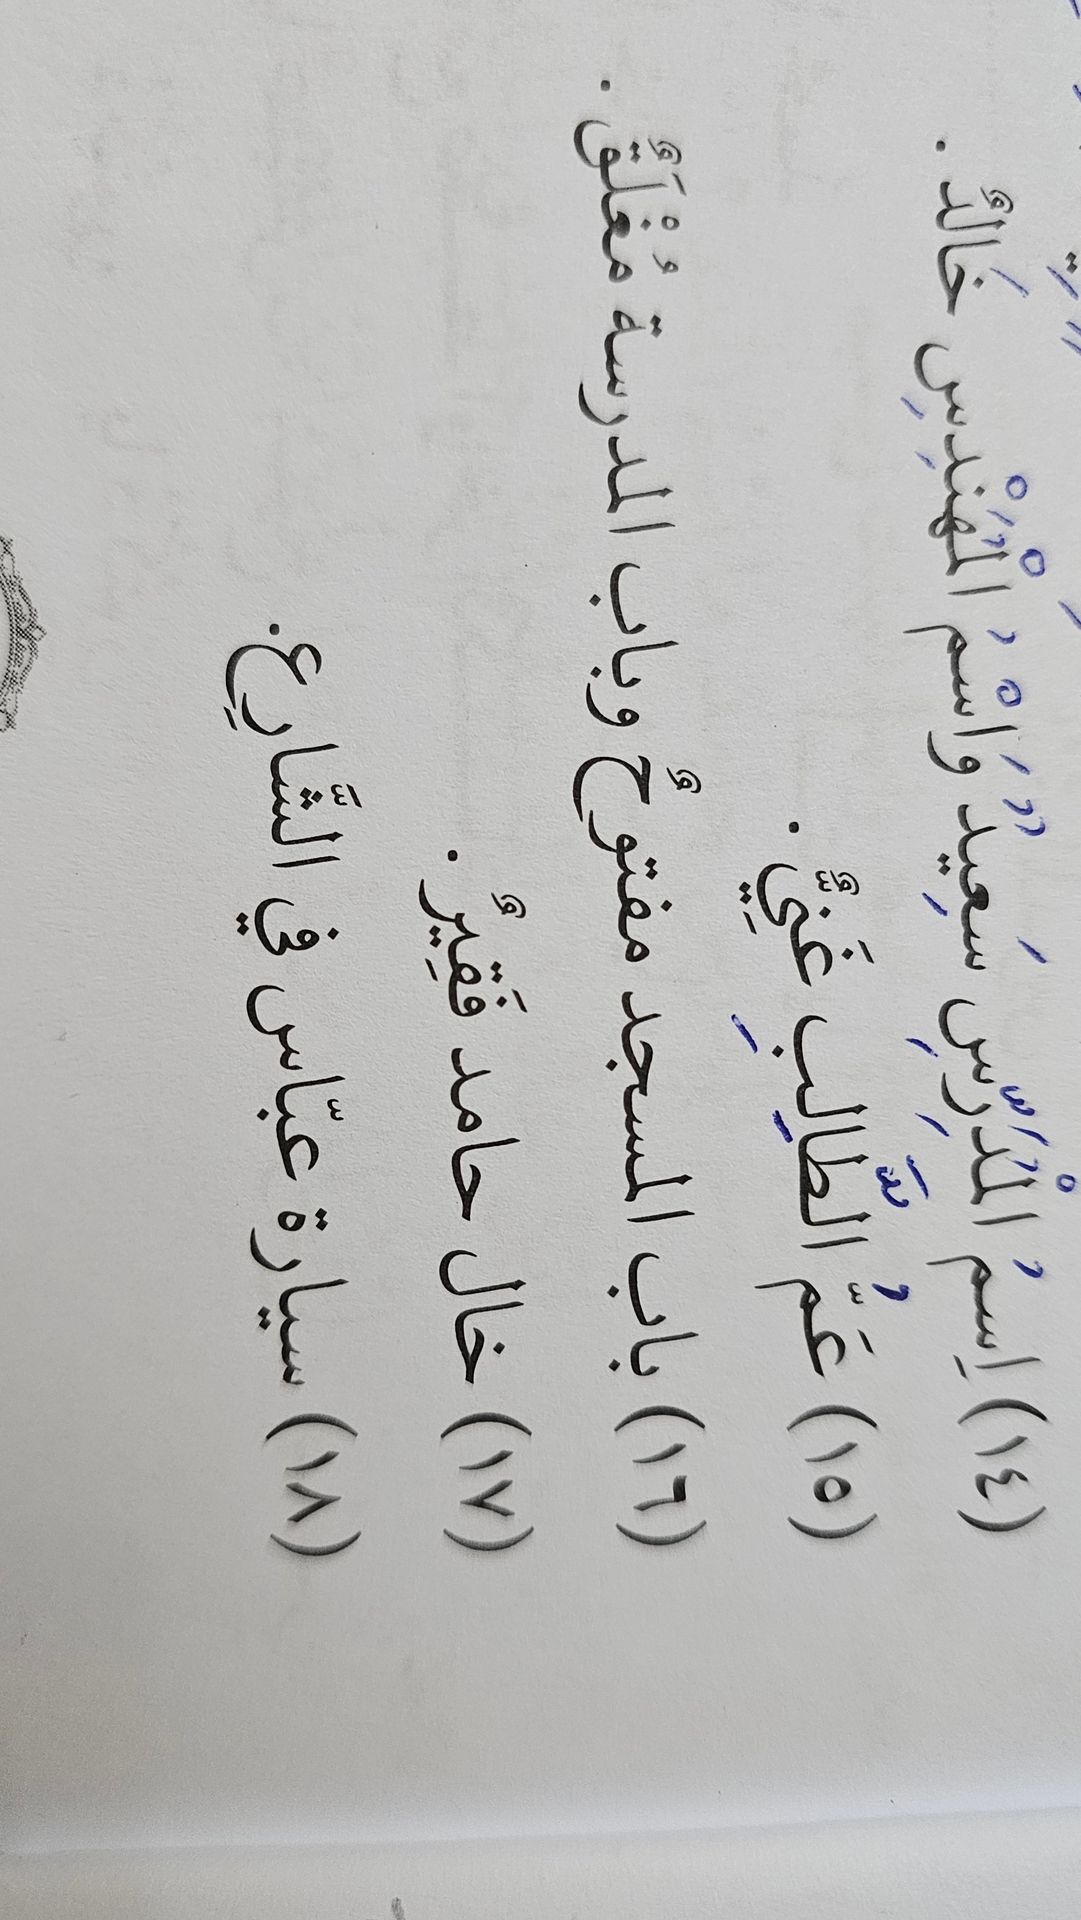 (١٤) اِسمُ الْمُدَرِّسِ سَعِيدٌ وَاسْمُ الْمُهَنْدِسِ خَالدٌ .
(١٥) عَمُّ الطَّالِبِ غَنِيٌّ .
(١٦) باب المسجد مفتوحٌ وباب المدرسة مُغْلَقٌ .
(١٧) خال حامد فَقِيرٌ .
(١٨) سيارة عبّاس في الشَّارِع .